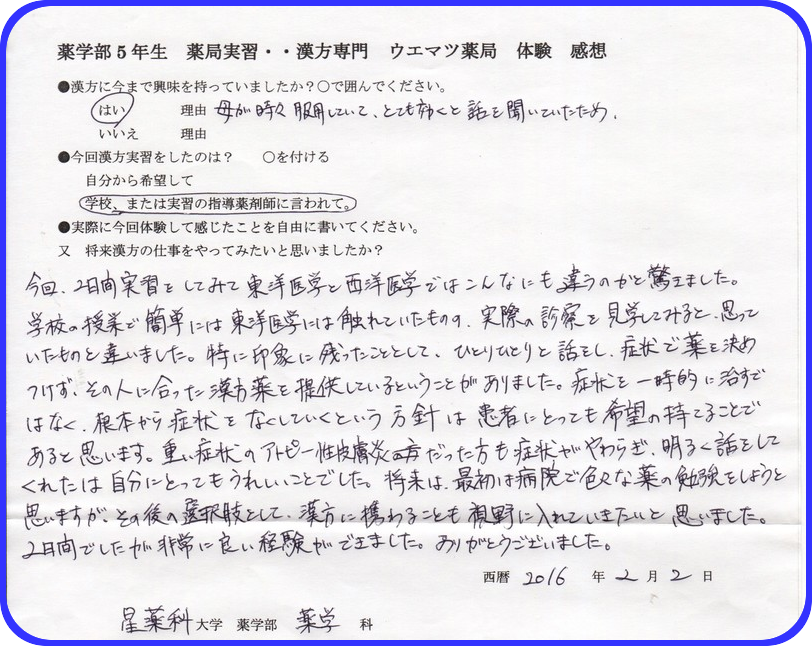 薬学部5年生 薬局実習・・漢方専門 ウエマツ薬局 体験 感想
●漢方に今まで興味を持っていましたか?○で囲んでください。
はい 理由 母が時々服用していて、とても効くと話を聞いていたため.
いいえ 理由
●今回漢方実習をしたのは? ○を付ける
自分から希望して
学校、または実習の指導薬剤師に言われて。
●実際に今回体験して感じたことを自由に書いてください。
又 将来漢方の仕事をやってみたいと思いましたか?
今回、2日間実習をしてみて東洋医学と西洋医学ではこんなにも違うのかと驚きました。
学校の授業で簡単には東洋医学には触れていたものの、実際の診察を見学してみると、思って
いたものと違いました。特に印象に残ったこととして、ひとりひとりと話をし、症状で薬を決め
つけず、その人に合った漢方薬を提供しているということがありました。症状を一時的に治すで
はなく、根本から症状をなくしていくという方針は患者にとっても希望の持てることで
あると思います。重い症状のアトピー性皮膚炎の だった方も症状がやわらぎ、明るく話をして
くれたは自分にとってもうれしいことでした。将来は、最初は病院で色々な薬の勉強をしようと
思いますが、その後の選択肢として、漢方に携わることも視野に入れていきたいと思いました。
2日間でしたが非常に良い経験ができました。ありがとうございました。
西暦 2016 年 2 月 2 日
星薬科大学 薬学部 薬学 科